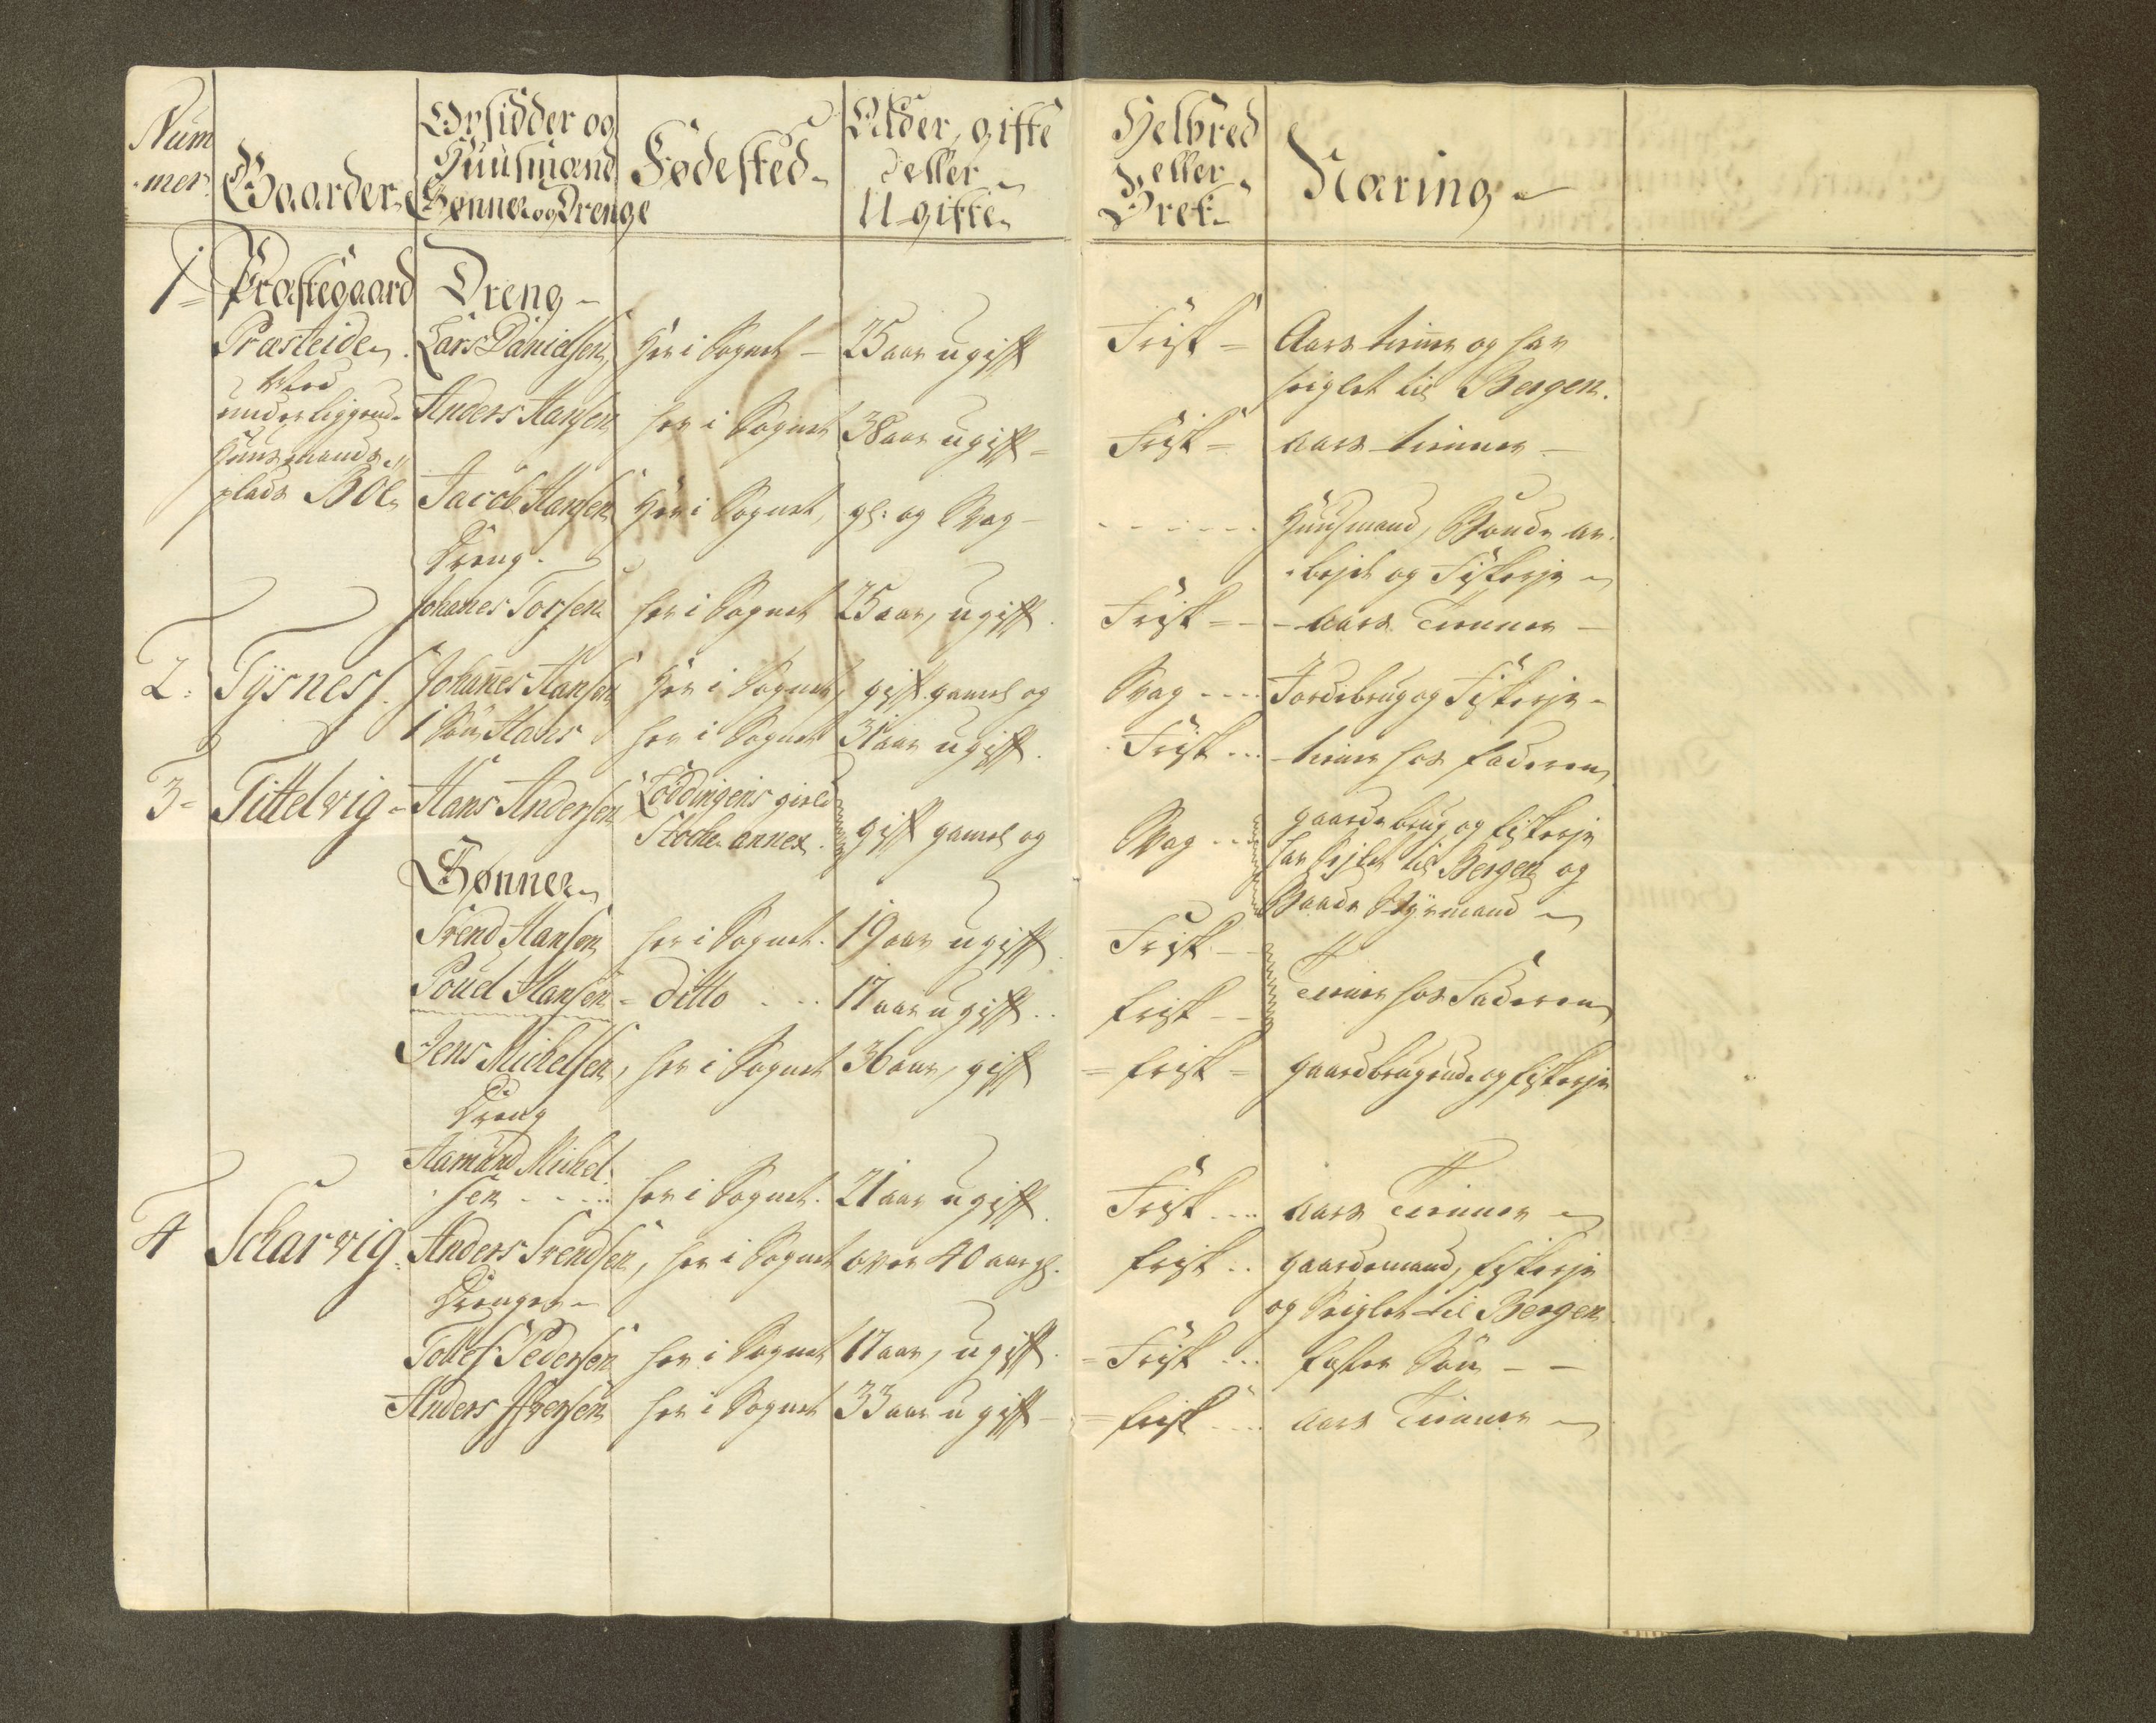 Num
mer.
Gaarder
Opsidder og
Huusmænd
Sønner og Drenge
Fødested
Alder, gifte
eller
Ugifte
Helbred
eller
Bræk
Næring
1 Præstegaard Dreng
Præsteide Lars Danielsen Her i Sognet 25 aar ugift Frisk Aars tienner og har
med seiglet til Bergen.
underliggende Anders Hansen her i Sognet 38 aar ugift Frisk aars tienner
Huusmands
plads Bøl Jacob Hansen Her i Sognet, gl: og Svag Huusmand, Bonde ar
Dreng bejd og Fiskerje
Johanes Torsen her i Sognet 25 aar, ugift Frisk aars Tienner
2. Tÿsness Johanes Hansen Her i Sognet, gift gamel og Svag Jordebrug og Fiskerje
1 Søn Hans her i Sognet 31 aar ugift. Frisk tiener hos faderen
3 Tittelvig Hans Andersen Loddingens gield
Stoche annex. gift gamel og Svag gaardebrug og fiskerje
har Sejlet til Bergen og
Baade Styrmand
Sønner
Svend Hansen her i Sognet. 19 aar ugift Frisk
Poul Hansen ditto 17 aar ugift frisk Tiener hos Faderen
Jens Michelsen, her i Sognet 36 aar, gift frisk gaardbrugende og fiskerje
Dreng
Hamund Michel
sen her i Sognet. 21 aar ugift Frisk aars Tienner
4 Scharvig Anders Svendsen, her i Sognet over 40 aar gl. frisk gaardemand, fiskerje
og Seiglet til Bergen
Drenger
Tollef Pedersen her i Sognet 17 aar, ugift Frisk foster Søn
Anders Iversen her i Sognet 33 aar ugift frisk aars Tienner